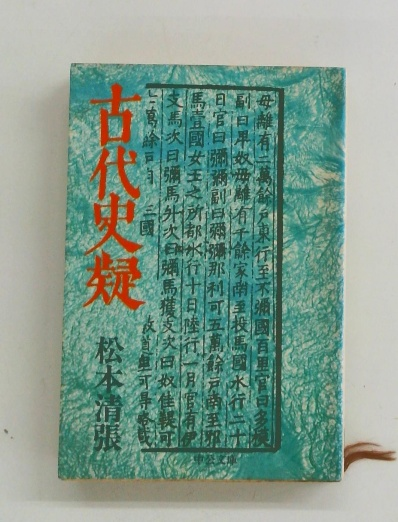 古代史疑
松本清張
毋離有二萬餘戸東行至不彌國百里官曰多模
副曰卑奴毋離有千餘家南至投馬國水行二十
日官曰彌彌副曰彌彌那利可五萬餘戸南至邪
馬壹國女王之所都水行十日陸行一月官有伊
支馬次曰彌馬升次曰彌馬獲支次曰奴佳鞮可
中公文庫